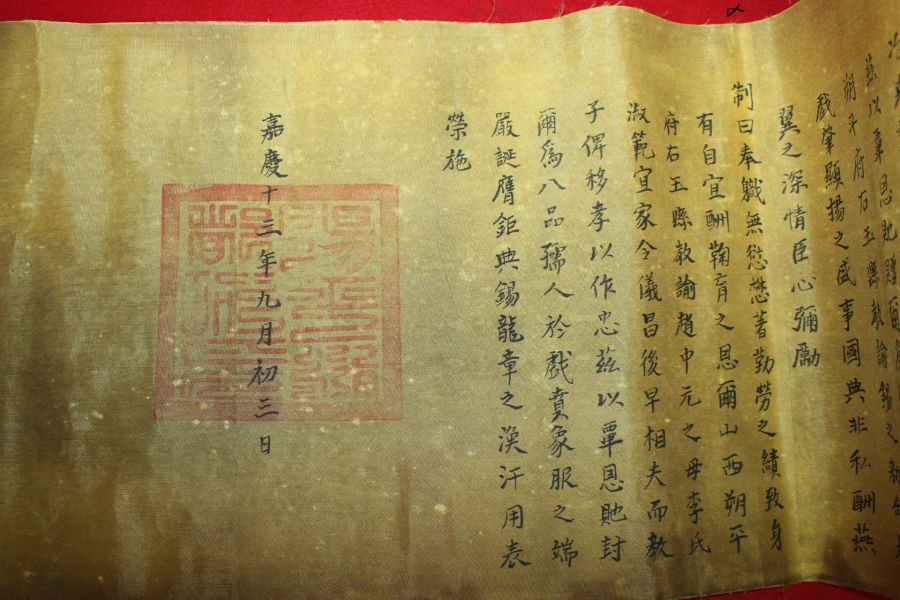 茲以覃恩貤贈爾
朔平府右玉縣教諭錫之
戲肇顯揚之盛事國典非私酬燕
翼之深情臣心彌勵
制曰奉職無愆懋著勤勞之績致身
有自宜酬鞠育之恩爾山西朔平
府右玉縣教諭趙中元之母李氏
淑範宜家令儀昌後早相夫而教
子俾移孝以作忠茲以覃恩貤封
爾為八品孺人於戲賁象服之端
嚴誕膺鉅典錫龍章之渙汗用表
榮施
嘉慶十三年九月初三日